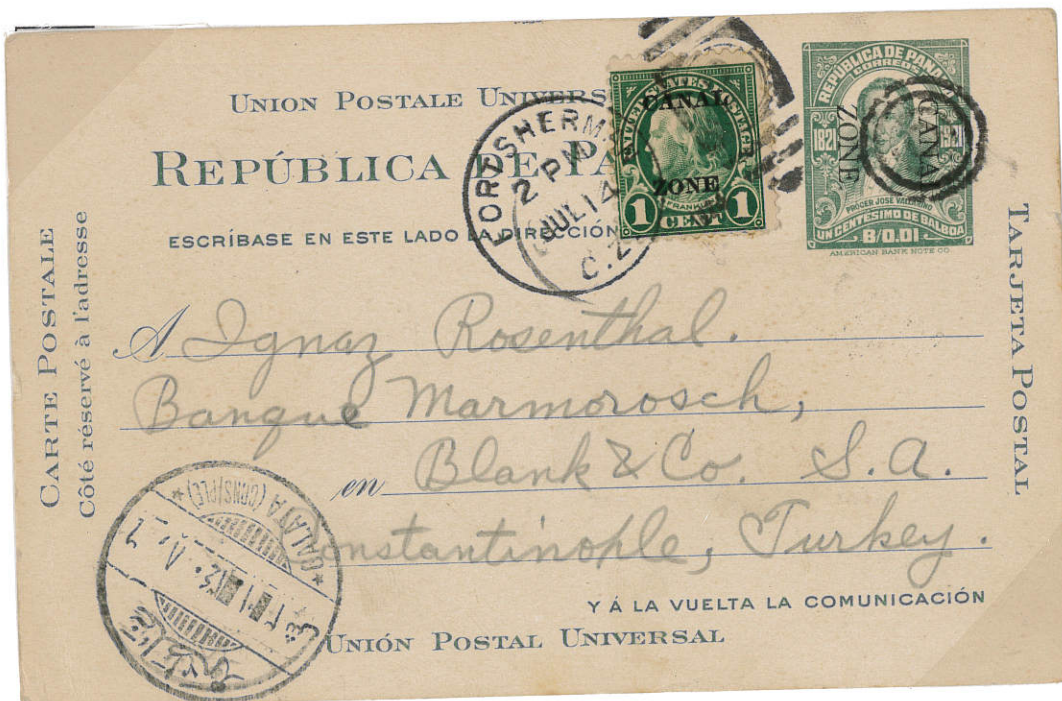 UNION POSTALE UNIVERS
REPÚBLICA DE PA
ESCRÍBASE EN ESTE LADO LA DIRECCIÓN
CARTE POSTALE
Côté réservé à l'adresse
TARJETA POSTAL
FORT SHERM
2 PM
JUL 14
C.Z
UNITED STATES POSTAGE
CANAL
ZONE
FRANKLIN
1 CENT 1
REPUBLICA DE PANA
CORREOS
1821 1921
CANAL
ZONE
PROCER JOSE VALLARINO
UN CENTESIMO DE BALBOA
B/0.01
AMERICAN BANK NOTE CO.
A Ignaz Rosenthal.
Banque Marmorosch,
en Blank & Co. S.A.
Constantinople, Turkey.
Y Á LA VUELTA LA COMUNICACIÓN
UNIÓN POSTAL UNIVERSAL
* GALATA (CONS/PLE) *